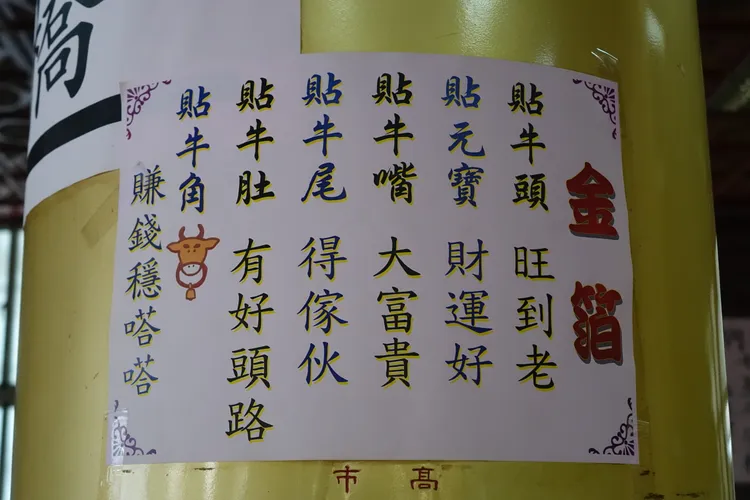 金箔
貼牛頭 旺到老
貼元寶 財運好
貼牛嘴 大富貴
貼牛尾 得傢伙
貼牛肚 有好頭路
貼牛角
賺錢穩嗒嗒
高市